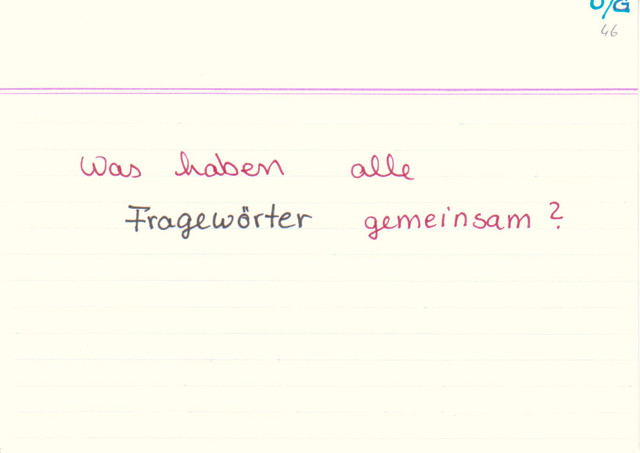 O/G
46
Was haben alle
Fragewörter gemeinsam?